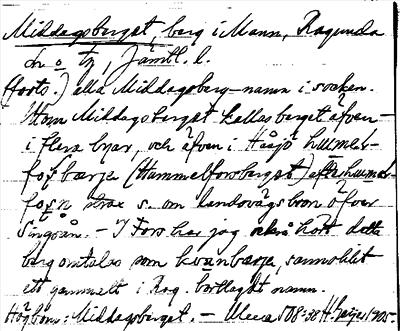 Middagsberget, berg i Mann, Ragunda
sn o tg, Jämtl. l.
(forts.) alla Middagsberg-namn i socken.
Utom Middagsberget kallas berget äfven
i flera byar, och äfven i Håsjö hummel-
fossbærje (Hammelforsberget) efter hummel-
fosn strax s. om landsvägsbron öfver
Singsån. - I Fors har jag också hört detta
berg omtalas som kvanbærje, sannolikt
ett gammalt i Rag. bortlagdt namn.
Högbons: Middagsberget. - 508:38 H. Geijer 1905-